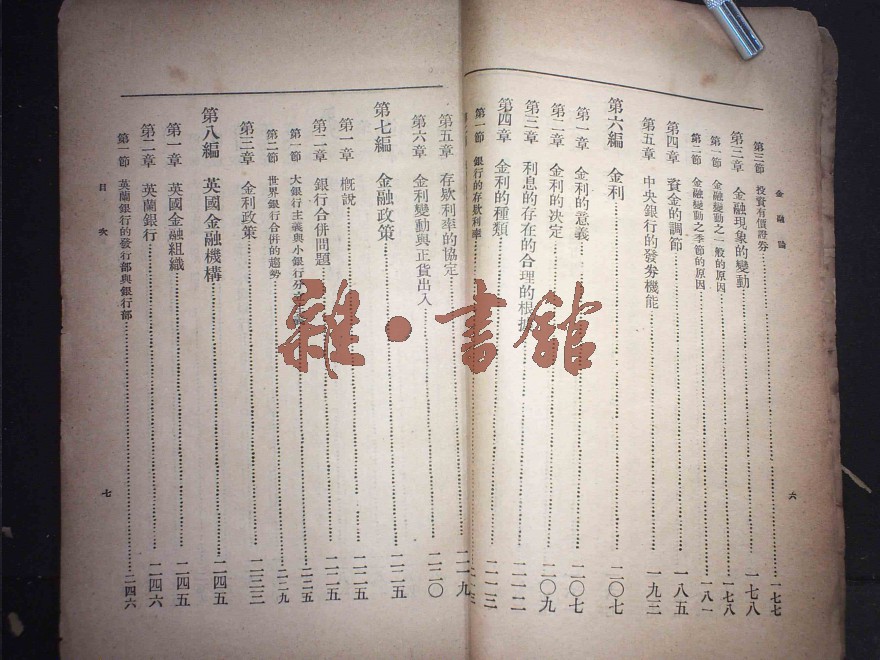 金融論
六
第三節 投資有價證券 一七七
第三章 金融現象的變動 一七八
第一節 金融變動之一般的原因 一七八
第二節 金融變動之季節的原因 一八一
第四章 資金的調節 一八五
第五章 中央銀行的發券機能 一九三
第六編 金利 二〇七
第一章 金利的意義 二〇七
第二章 金利的决定 二〇九
第三章 利息的存在的合理的根據 二一二
第四章 金利的種類 二一三
第一節 銀行的存欵利率
第五章 存欵利率的協定 二一九
第六章 金利變動與正貨出入 二二〇
第七編 金融政策 二二五
第一章 概說 二二五
第二章 銀行合併問題 二二五
第一節 大銀行主義與小銀行 二二五
第二節 世界銀行合併的趨勢 二二九
第三章 金利政策 二三三
第八編 英國金融機構 二四五
第一章 英國金融組織 二四五
第二章 英蘭銀行 二四六
第一節 英蘭銀行的發行部與銀行部 二四六
目次
七
雜·書館